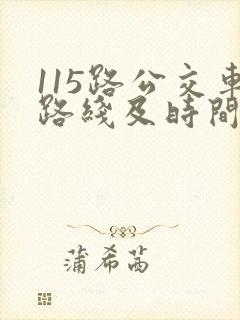 115路公交車
路綫及時間
蒲希茜